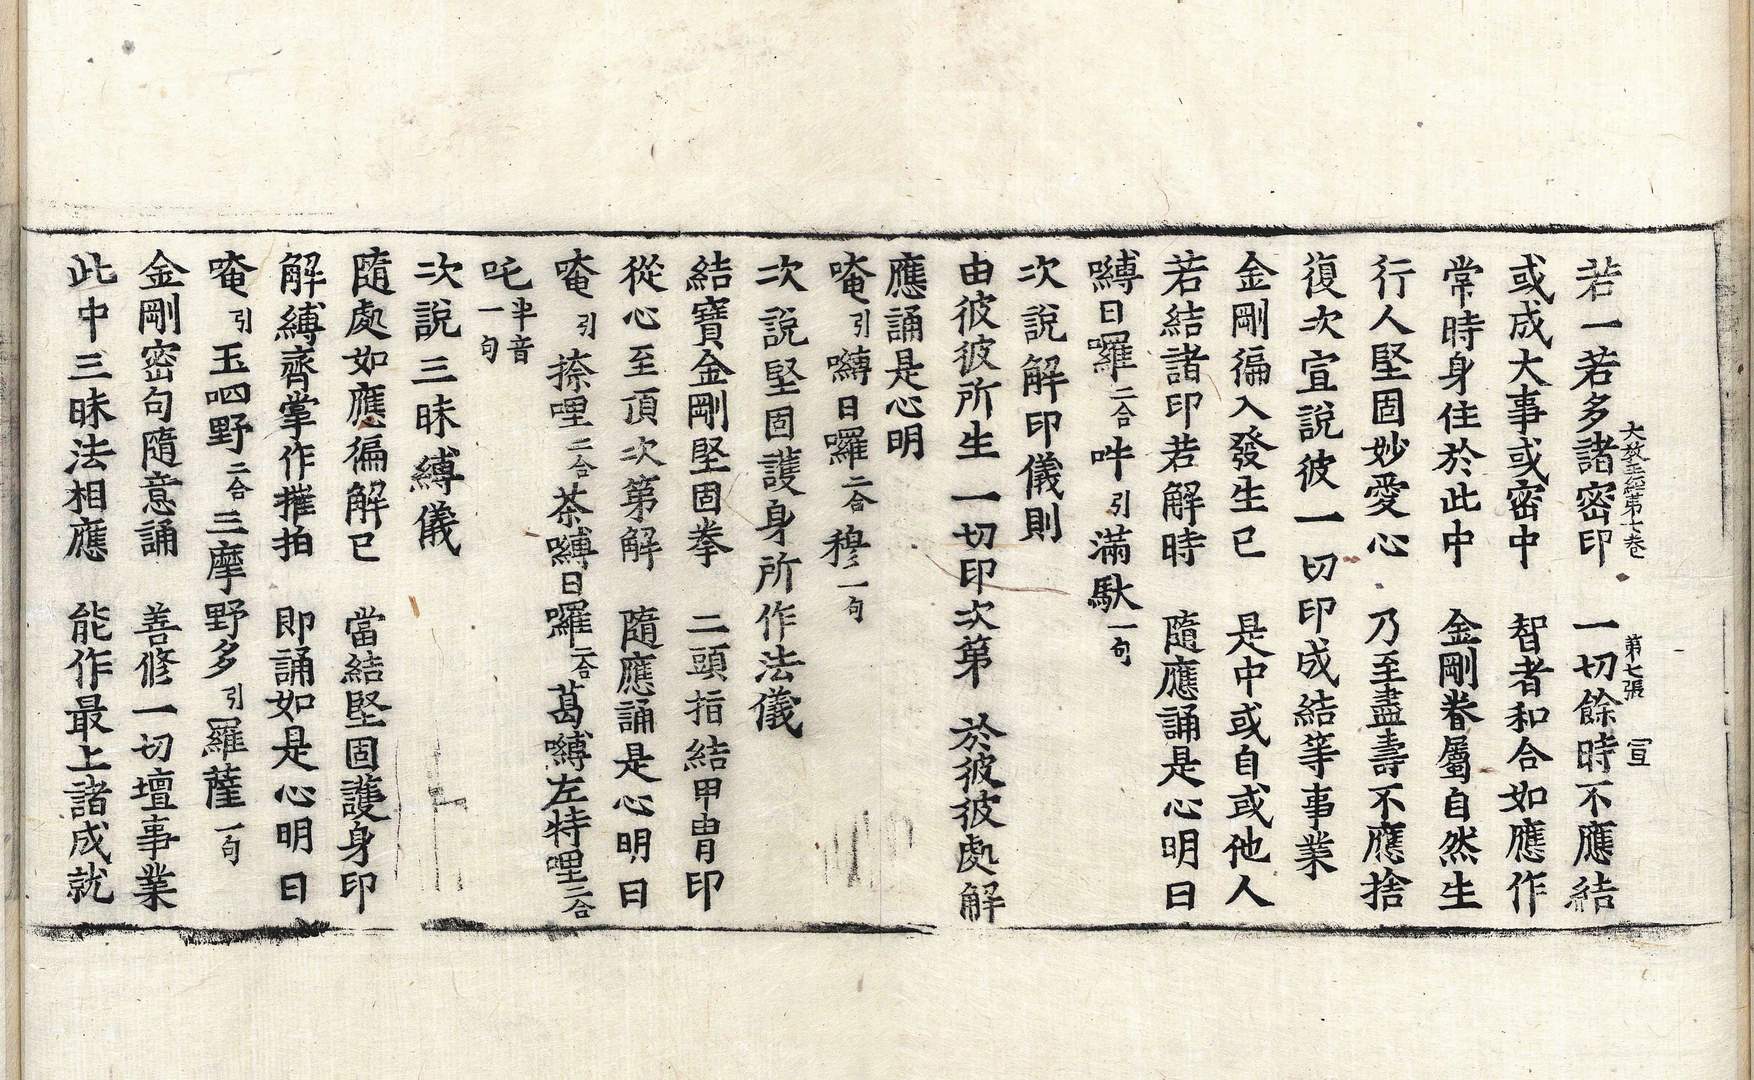 大教王經第七卷　第七張　宣
若一若多諸密印　一切餘時不應結
或成大事或密中　智者和合如應作
常時身住於此中　金剛眷屬自然生
行人堅固妙愛心　乃至盡壽不應捨
復次宣說彼一切印成結等事業
金剛徧入發生已　是中或自或他人
若結諸印若解時　隨應誦是心明曰
嚩日囉二合吽引滿馱一句
次說解印儀則
由彼彼所生一切印次第　於彼彼處解
應誦是心明
唵引嚩日囉二合穆一句
次說堅固護身所作法儀
結寶金剛堅固拳　二頭指結甲冑印
從心至頂次第解　隨應誦是心明曰
唵引捺哩二合茶嚩日囉二合葛嚩左特哩二合
吒半音一句
次說三昧縛儀
隨處如應徧解已　當結堅固護身印
解縛齊掌作摧拍　即誦如是心明曰
唵引玉呬野二合三摩野多引羅薩一句
金剛密句隨意誦　善修一切壇事業
此中三昧法相應　能作最上諸成就